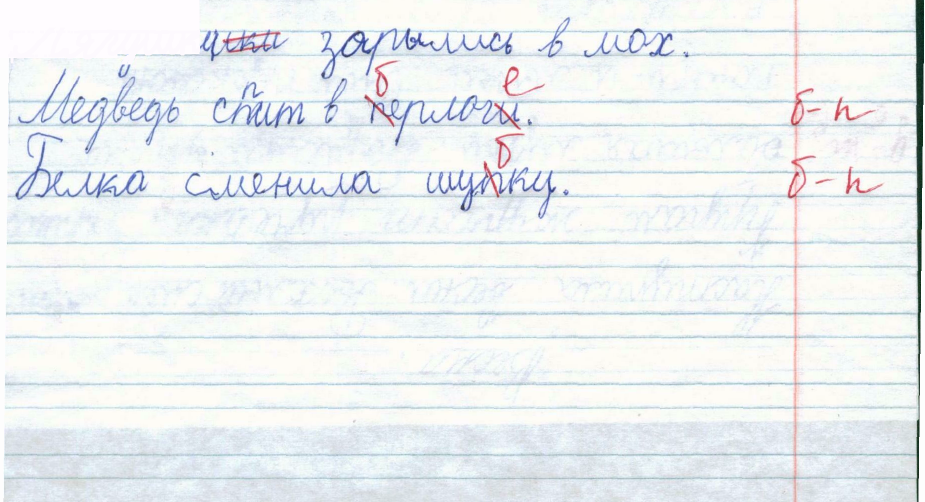 зарылись в мох.
Медведь спит в перлоги. б е б-п
Белка сменила шупку. б б-п